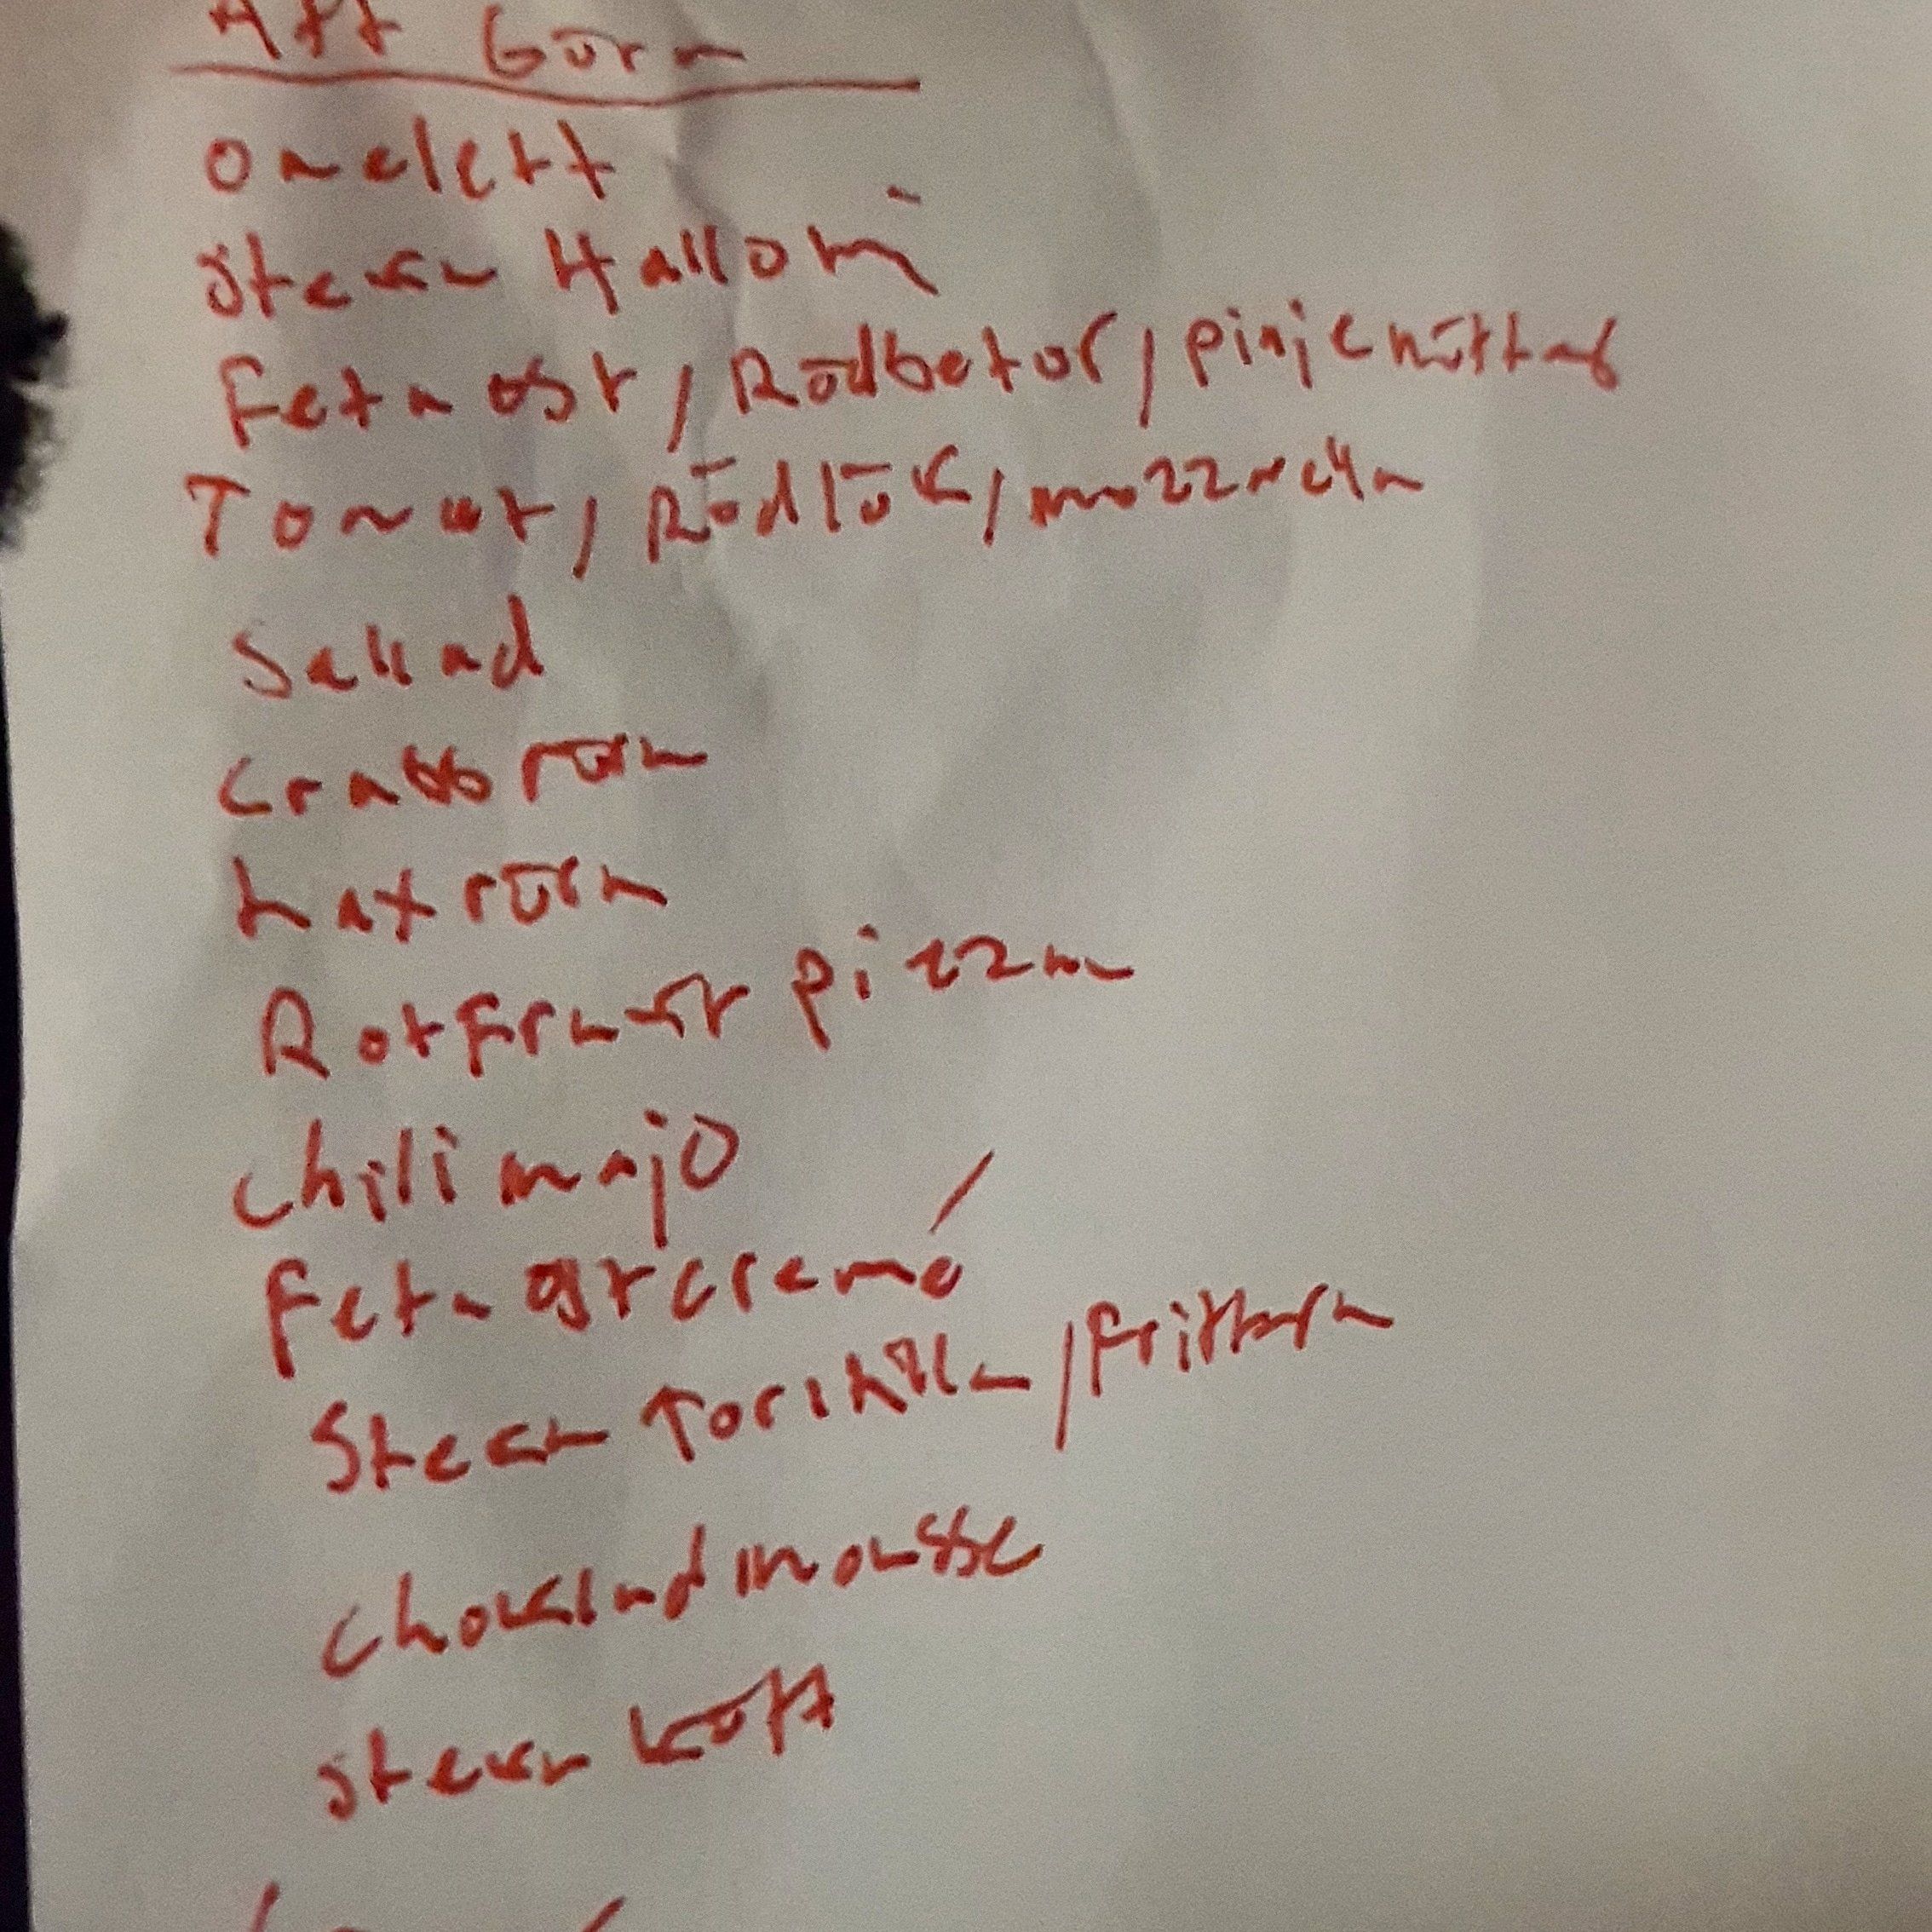 Att Göra
omelett
Steka Hallomi
Fetaost, Rödbetor, pinjenötter
Tomat, Rödlök, mozzarella
Sallad
Crabbröra
Laxröra
Rotfrukt pizza
chili majo
Fetaostcremé
Steka Tortilla / Fritera
Chokladmousse
steka kött